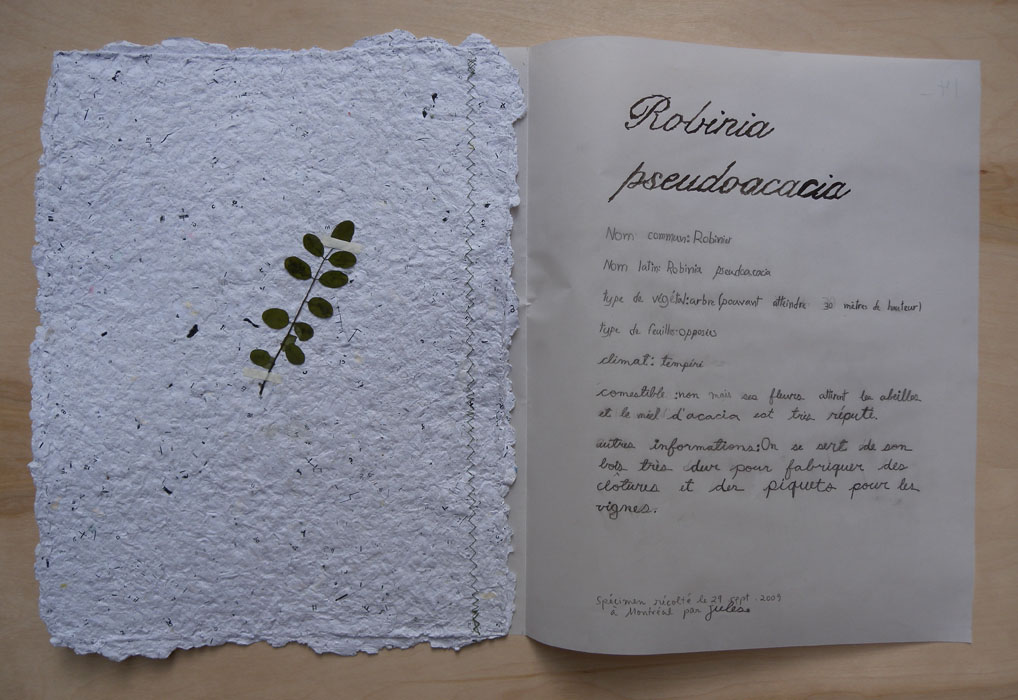 Robinia
pseudoacacia
Nom commun: Robinier
Nom latin: Robinia pseudoacacia
type de végétal: arbre (pouvant atteindre 30 mètres de hauteur)
type de feuille: opposées
climat: tempéré
comestible: non mais ses fleurs attirent les abeilles
et le miel d'acacia est très réputé.
autres informations: On se sert de son
bois très dur pour fabriquer des
clôtures et des piquets pour les
vignes.
Spécimen récolté le 29 sept. 2009
à Montréal par Jules